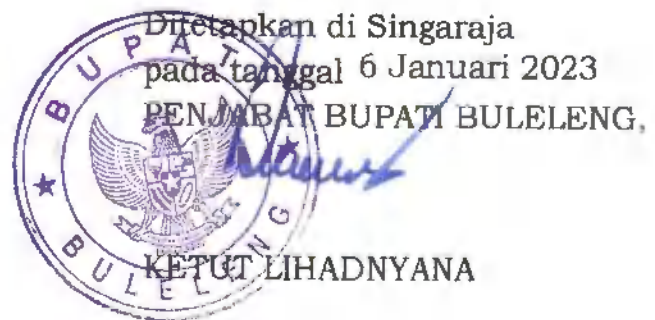 Ditetapkan di Singaraja
pada tanggal 6 Januari 2023
PENJABAT BUPATI BULELENG,
KETUT LIHADNYANA
BUPATI
BULELENG